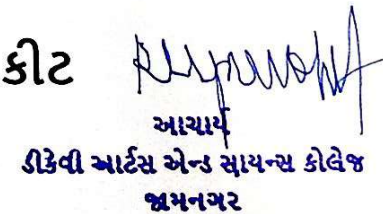 કીટ
આચાર્ય
ડીકેવી આર્ટસ એન્ડ સાયન્સ કોલેજ
જામનગર